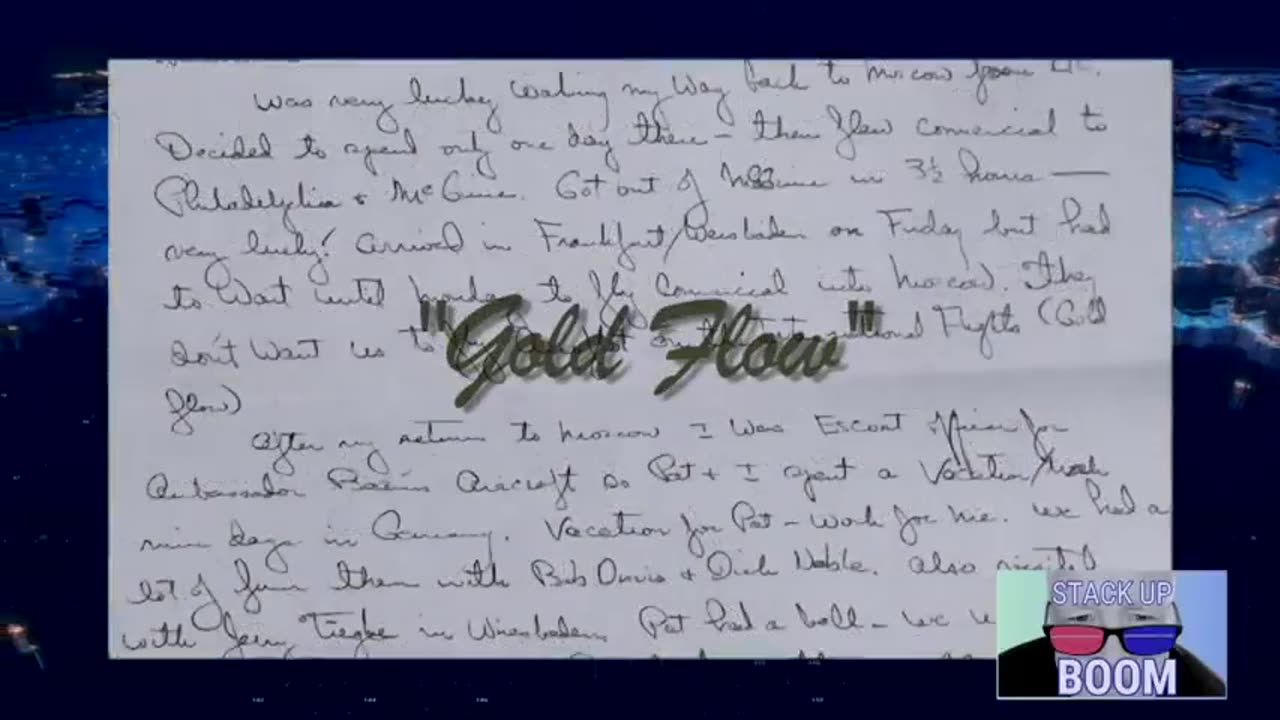 Was very lucky working my Way back to Moscow from
Decided to spend only one day there - then flew commercial to
Philadelphia & McGuire. Got out of McGuire in 3½ hours —
very lucky! Arrived in Frankfurt/Weisbaden on Friday but had
to Wait until Monday to fly Commercial into Moscow. They
don't Want us to fly Flights (Gold
"Gold Flow"
flow)
After my return to Moscow I Was Escort Officer for
Ambassador Aircraft so Pat + I spent a Vacation/Work
nine days in Germany. Vacation for Pat - Work for me. We had a
lot of fun there with Bob Davis & Dick Noble. Also visited
with Jerry in Wiesbaden. Pat had a ball - we
STACK UP
BOOM